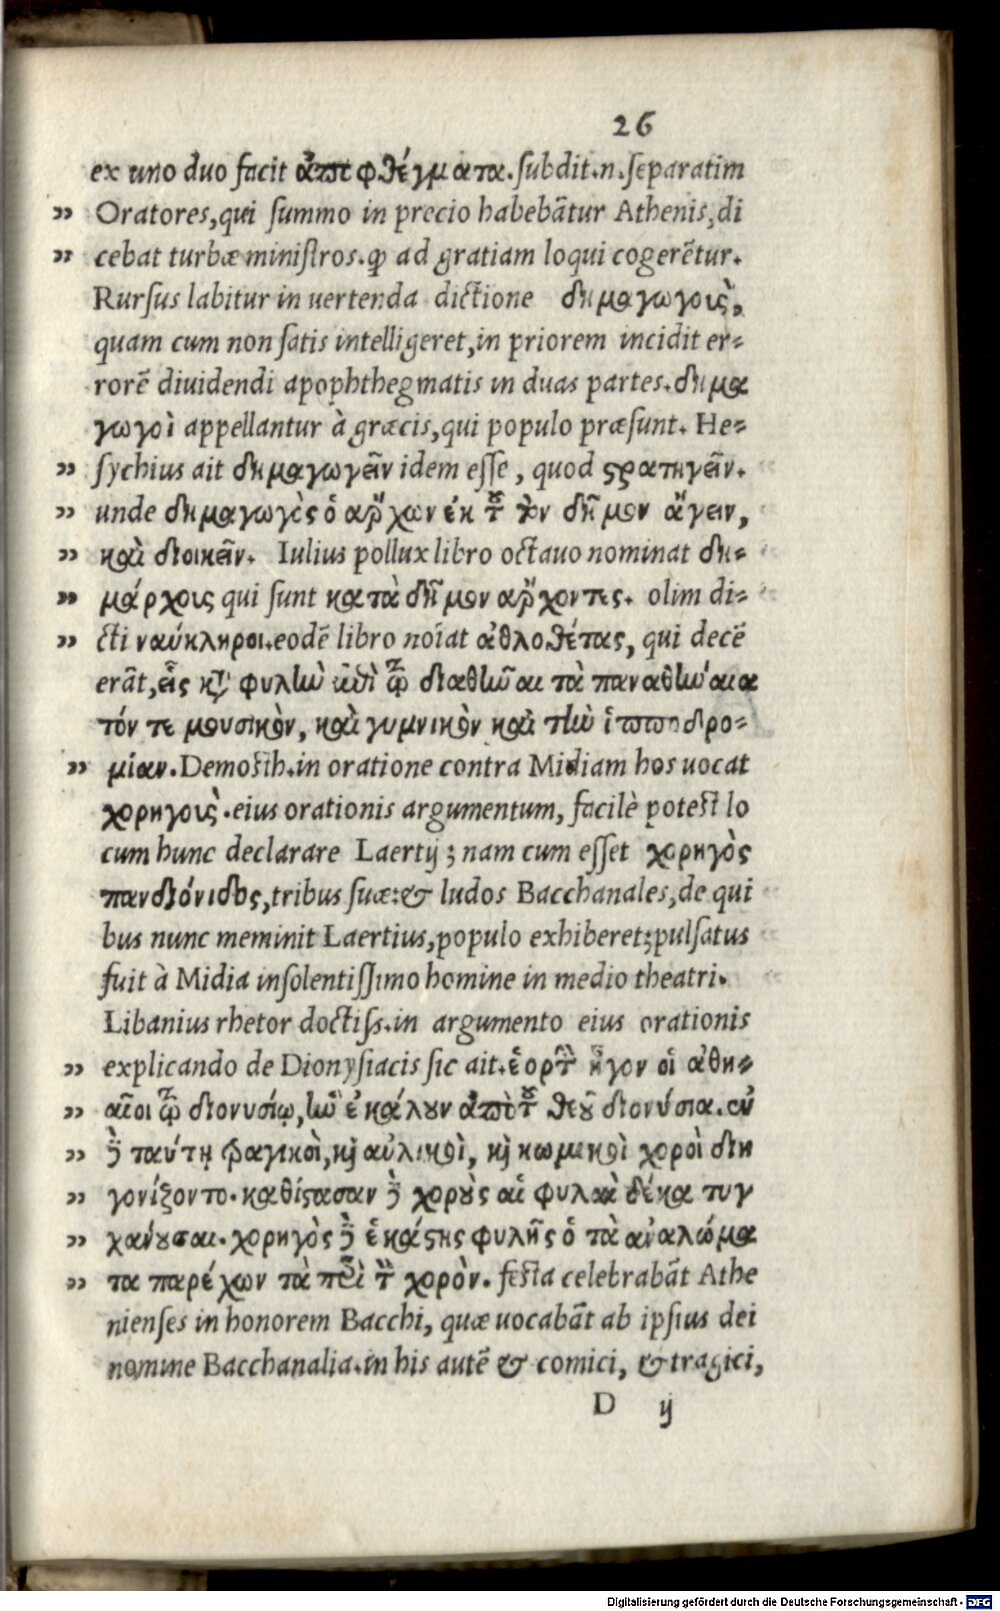 26
ex uno duo facit ἀποφθέγματα. subdit.n. separatim
„ Oratores, qui summo in precio habebāntur Athenis, di
„ cebat turbæ ministros. ꝙ ad gratiam loqui cogerētur.
Rursus labitur in uertenda dictione δημαγωγοὺς,
quam cum non satis intelligeret, in priorem incidit er-
rorē diuidendi apophthegmatis in duas partes. δημα
γωγοὶ appellantur à græcis, qui populo præsunt. He-
„ sychius ait δημαγωγεῖν idem esse, quod ϛρατηγεῖν.
„ unde δημαγωγὸς ὁ ἄρχων ἐκ τοῦ τὸν δῆμον ἄγειν,
„ καὶ διοικεῖν. Iulius pollux libro octauo nominat δη-
„ μάρχους qui sunt κατὰ δῆμον ἄρχοντες. olim di-
„ cti ναύκληροι. eodē libro noīat ἀθλοθέτας, qui decē
erāt, εἷς κατὰ φυλὴν ἐπὶ τῷ διαθεῖναι τὰ παναθήναια
τόν τε μουσικὸν, καὶ γυμνικὸν καὶ τὴν ἱπποδρο-
„ μίαν. Demosth. in oratione contra Midiam hos uocat
χορηγοὺς. eius orationis argumentum, facilè potest lo
cum hunc declarare Laertij; nam cum esset χορηγὸς
πανδιόνιδος, tribus suæ: & ludos Bacchanales, de qui
bus nunc meminit Laertius, populo exhiberet; pulsatus
fuit à Midia insolentissimo homine in medio theatri.
Libanius rhetor doctiss. in argumento eius orationis
„ explicando de Dionysiacis sic ait. ἑορτὴν ἦγον οἱ ἀθη-
„ ναῖοι τῷ διονυσίῳ, ἣν ἐκάλουν ἀπὸ τοῦ θεοῦ διονύσια. ἐν
„ δὲ ταύτῃ τραγικοὶ, καὶ αὐλικοὶ, καὶ κωμικοὶ χοροὶ διη
„ γονίζοντο. καθίϛασαν δὲ χοροὺς αἱ φυλαὶ δέκα τυγ
„ χάνουσαι. χορηγὸς δὲ ἑκάϛης φυλῆς ὁ τὰ ἀναλώμα
„ τα παρέχων τὰ περὶ τὸν χορὸν. festa celebrabāt Athe
nienses in honorem Bacchi, quæ uocabāt ab ipsius dei
nomine Bacchanalia. in his autē & comici, & tragici,
D ij
Digitalisierung gefördert durch die Deutsche Forschungsgemeinschaft - DFG